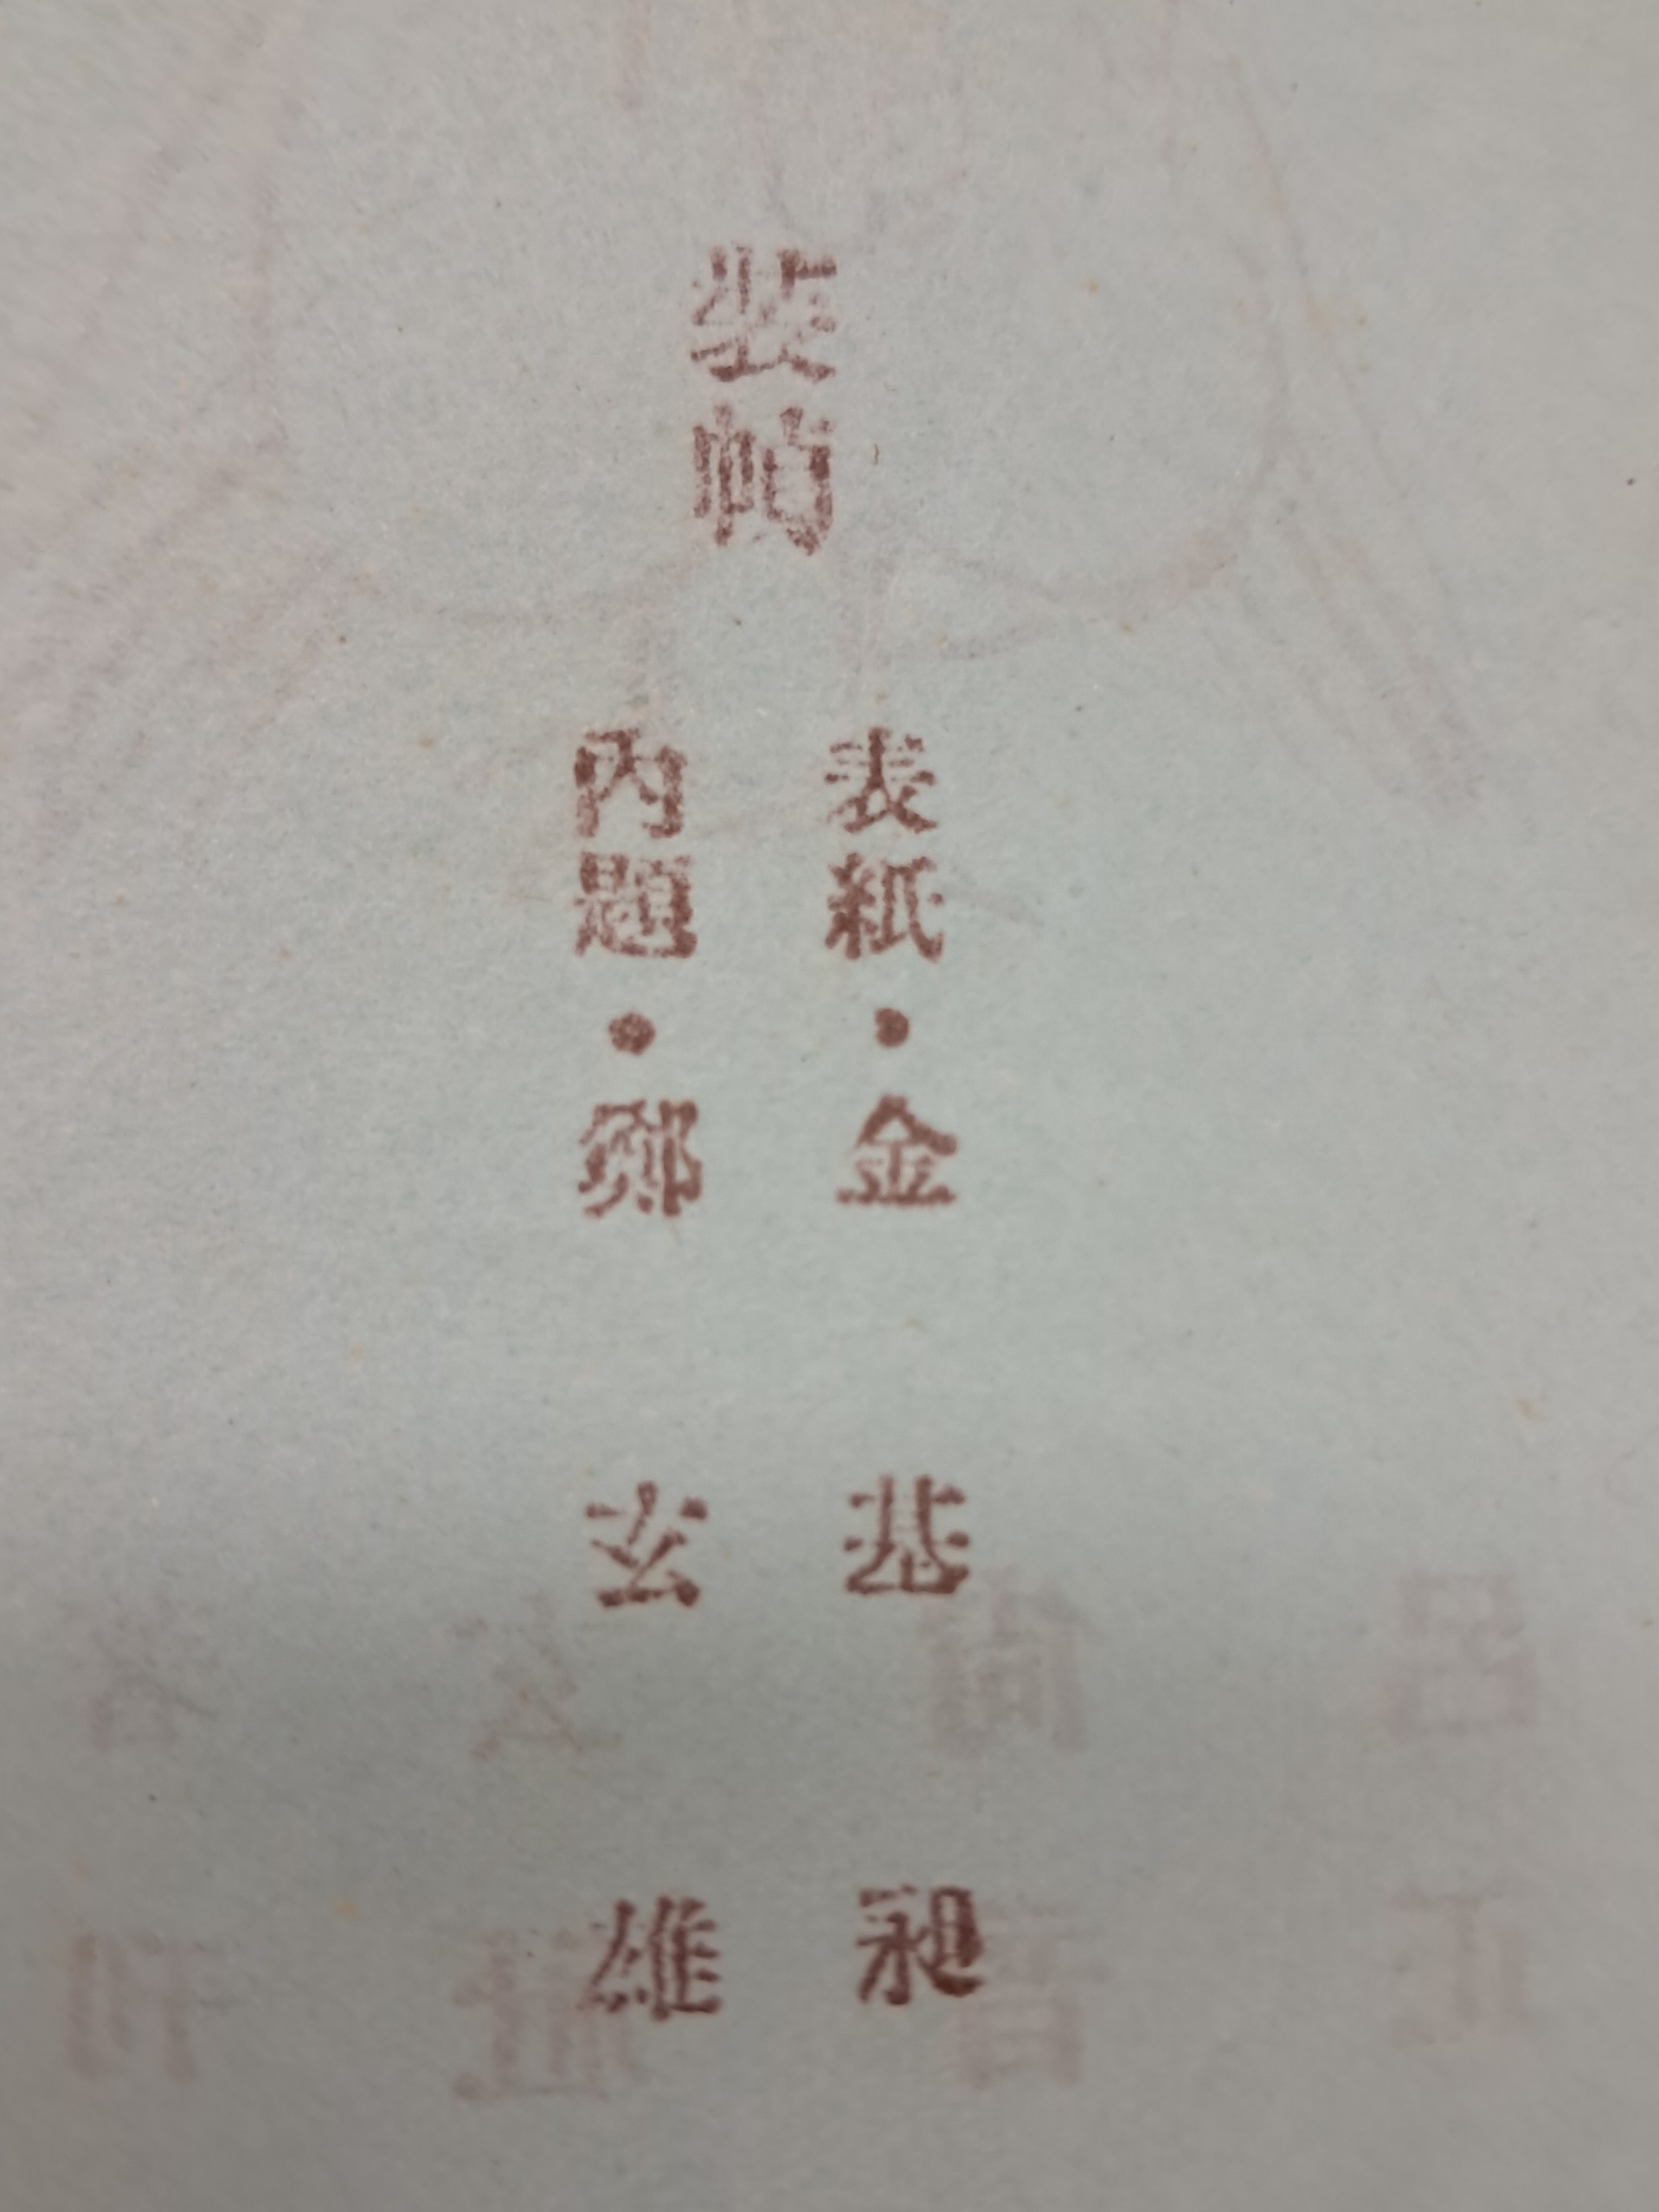 裝幀
表紙・金 基 昶
內題・鄭 玄 雄